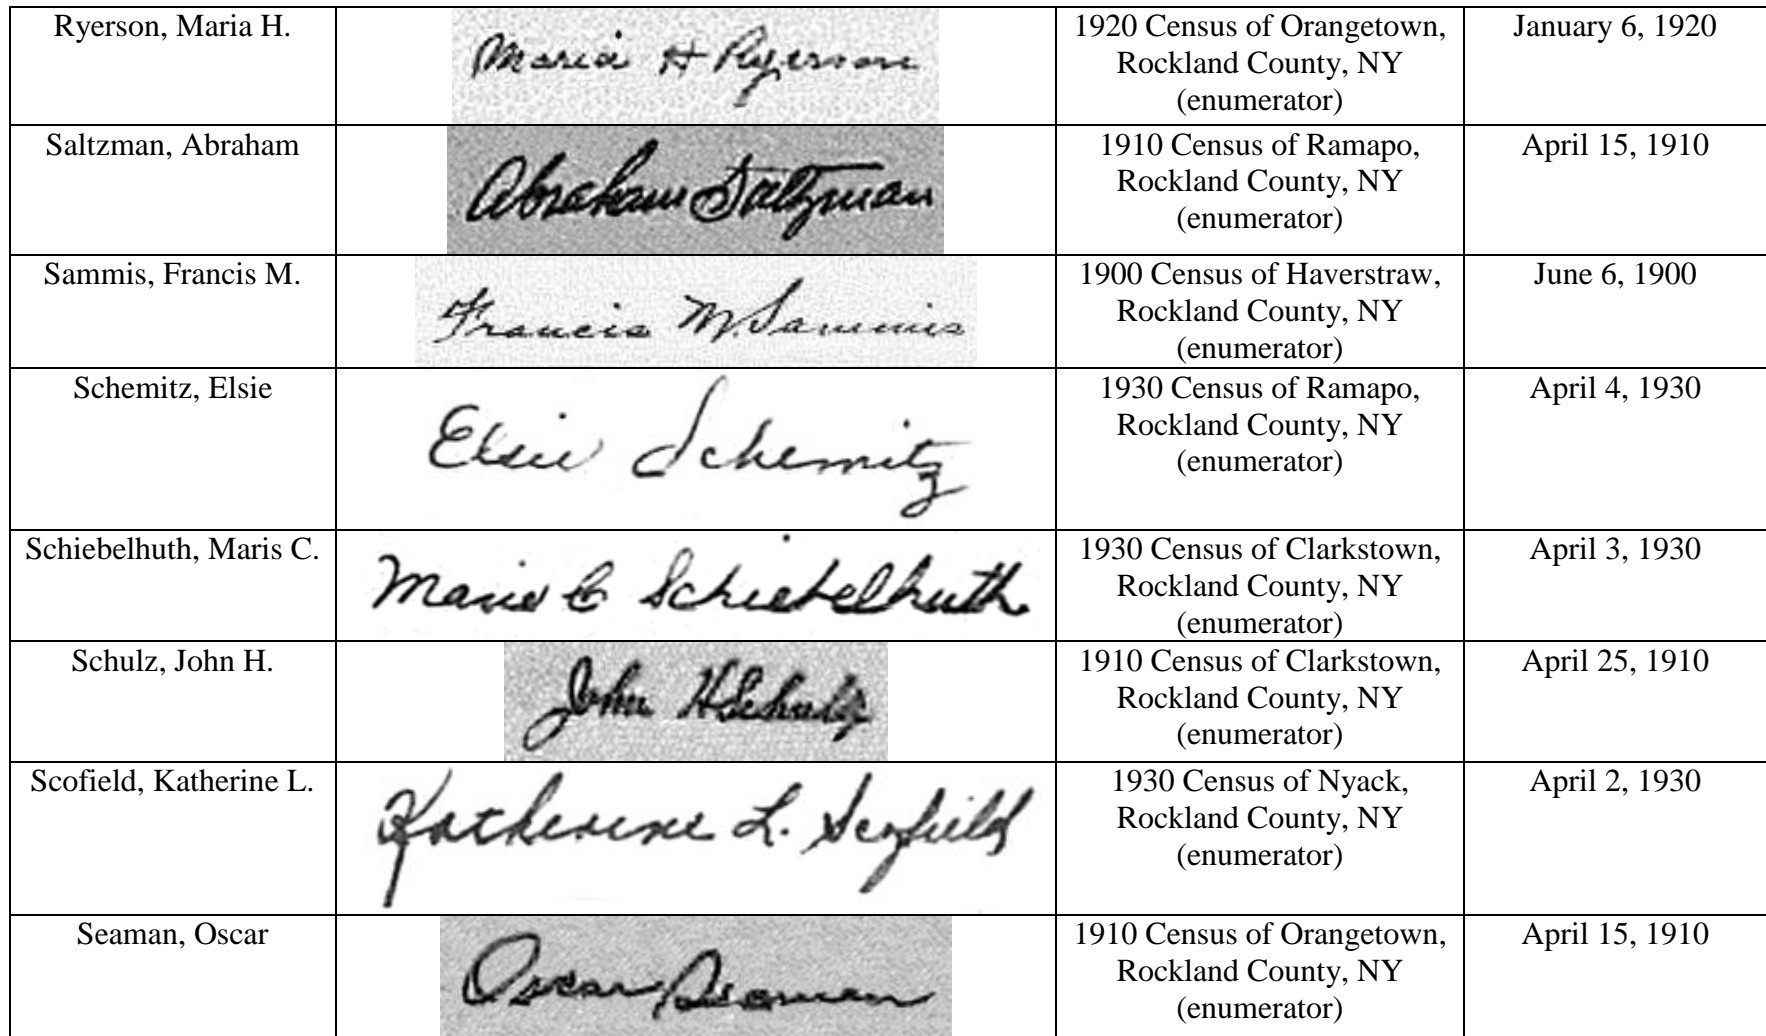 Ryerson, Maria H.
Maria H Ryerson
1920 Census of Orangetown,
Rockland County, NY
(enumerator)
January 6, 1920
Saltzman, Abraham
Abraham Saltzman
1910 Census of Ramapo,
Rockland County, NY
(enumerator)
April 15, 1910
Sammis, Francis M.
Francis M. Sammis
1900 Census of Haverstraw,
Rockland County, NY
(enumerator)
June 6, 1900
Schemitz, Elsie
Elsie Schemitz
1930 Census of Ramapo,
Rockland County, NY
(enumerator)
April 4, 1930
Schiebelhuth, Maris C.
Marie C Schiebelhuth
1930 Census of Clarkstown,
Rockland County, NY
(enumerator)
April 3, 1930
Schulz, John H.
John H Schulz
1910 Census of Clarkstown,
Rockland County, NY
(enumerator)
April 25, 1910
Scofield, Katherine L.
Katherine L. Scofield
1930 Census of Nyack,
Rockland County, NY
(enumerator)
April 2, 1930
Seaman, Oscar
Oscar Seaman
1910 Census of Orangetown,
Rockland County, NY
(enumerator)
April 15, 1910